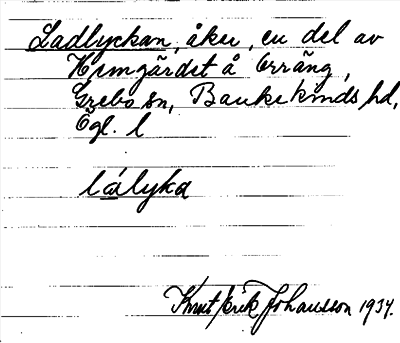 Ladlyckan, åker, en del av
Hemgärdet å Erräng,
Grebo sn, Bankekinds hd,
Ögl. l
lályka
Knut Erik Johansson 1934.